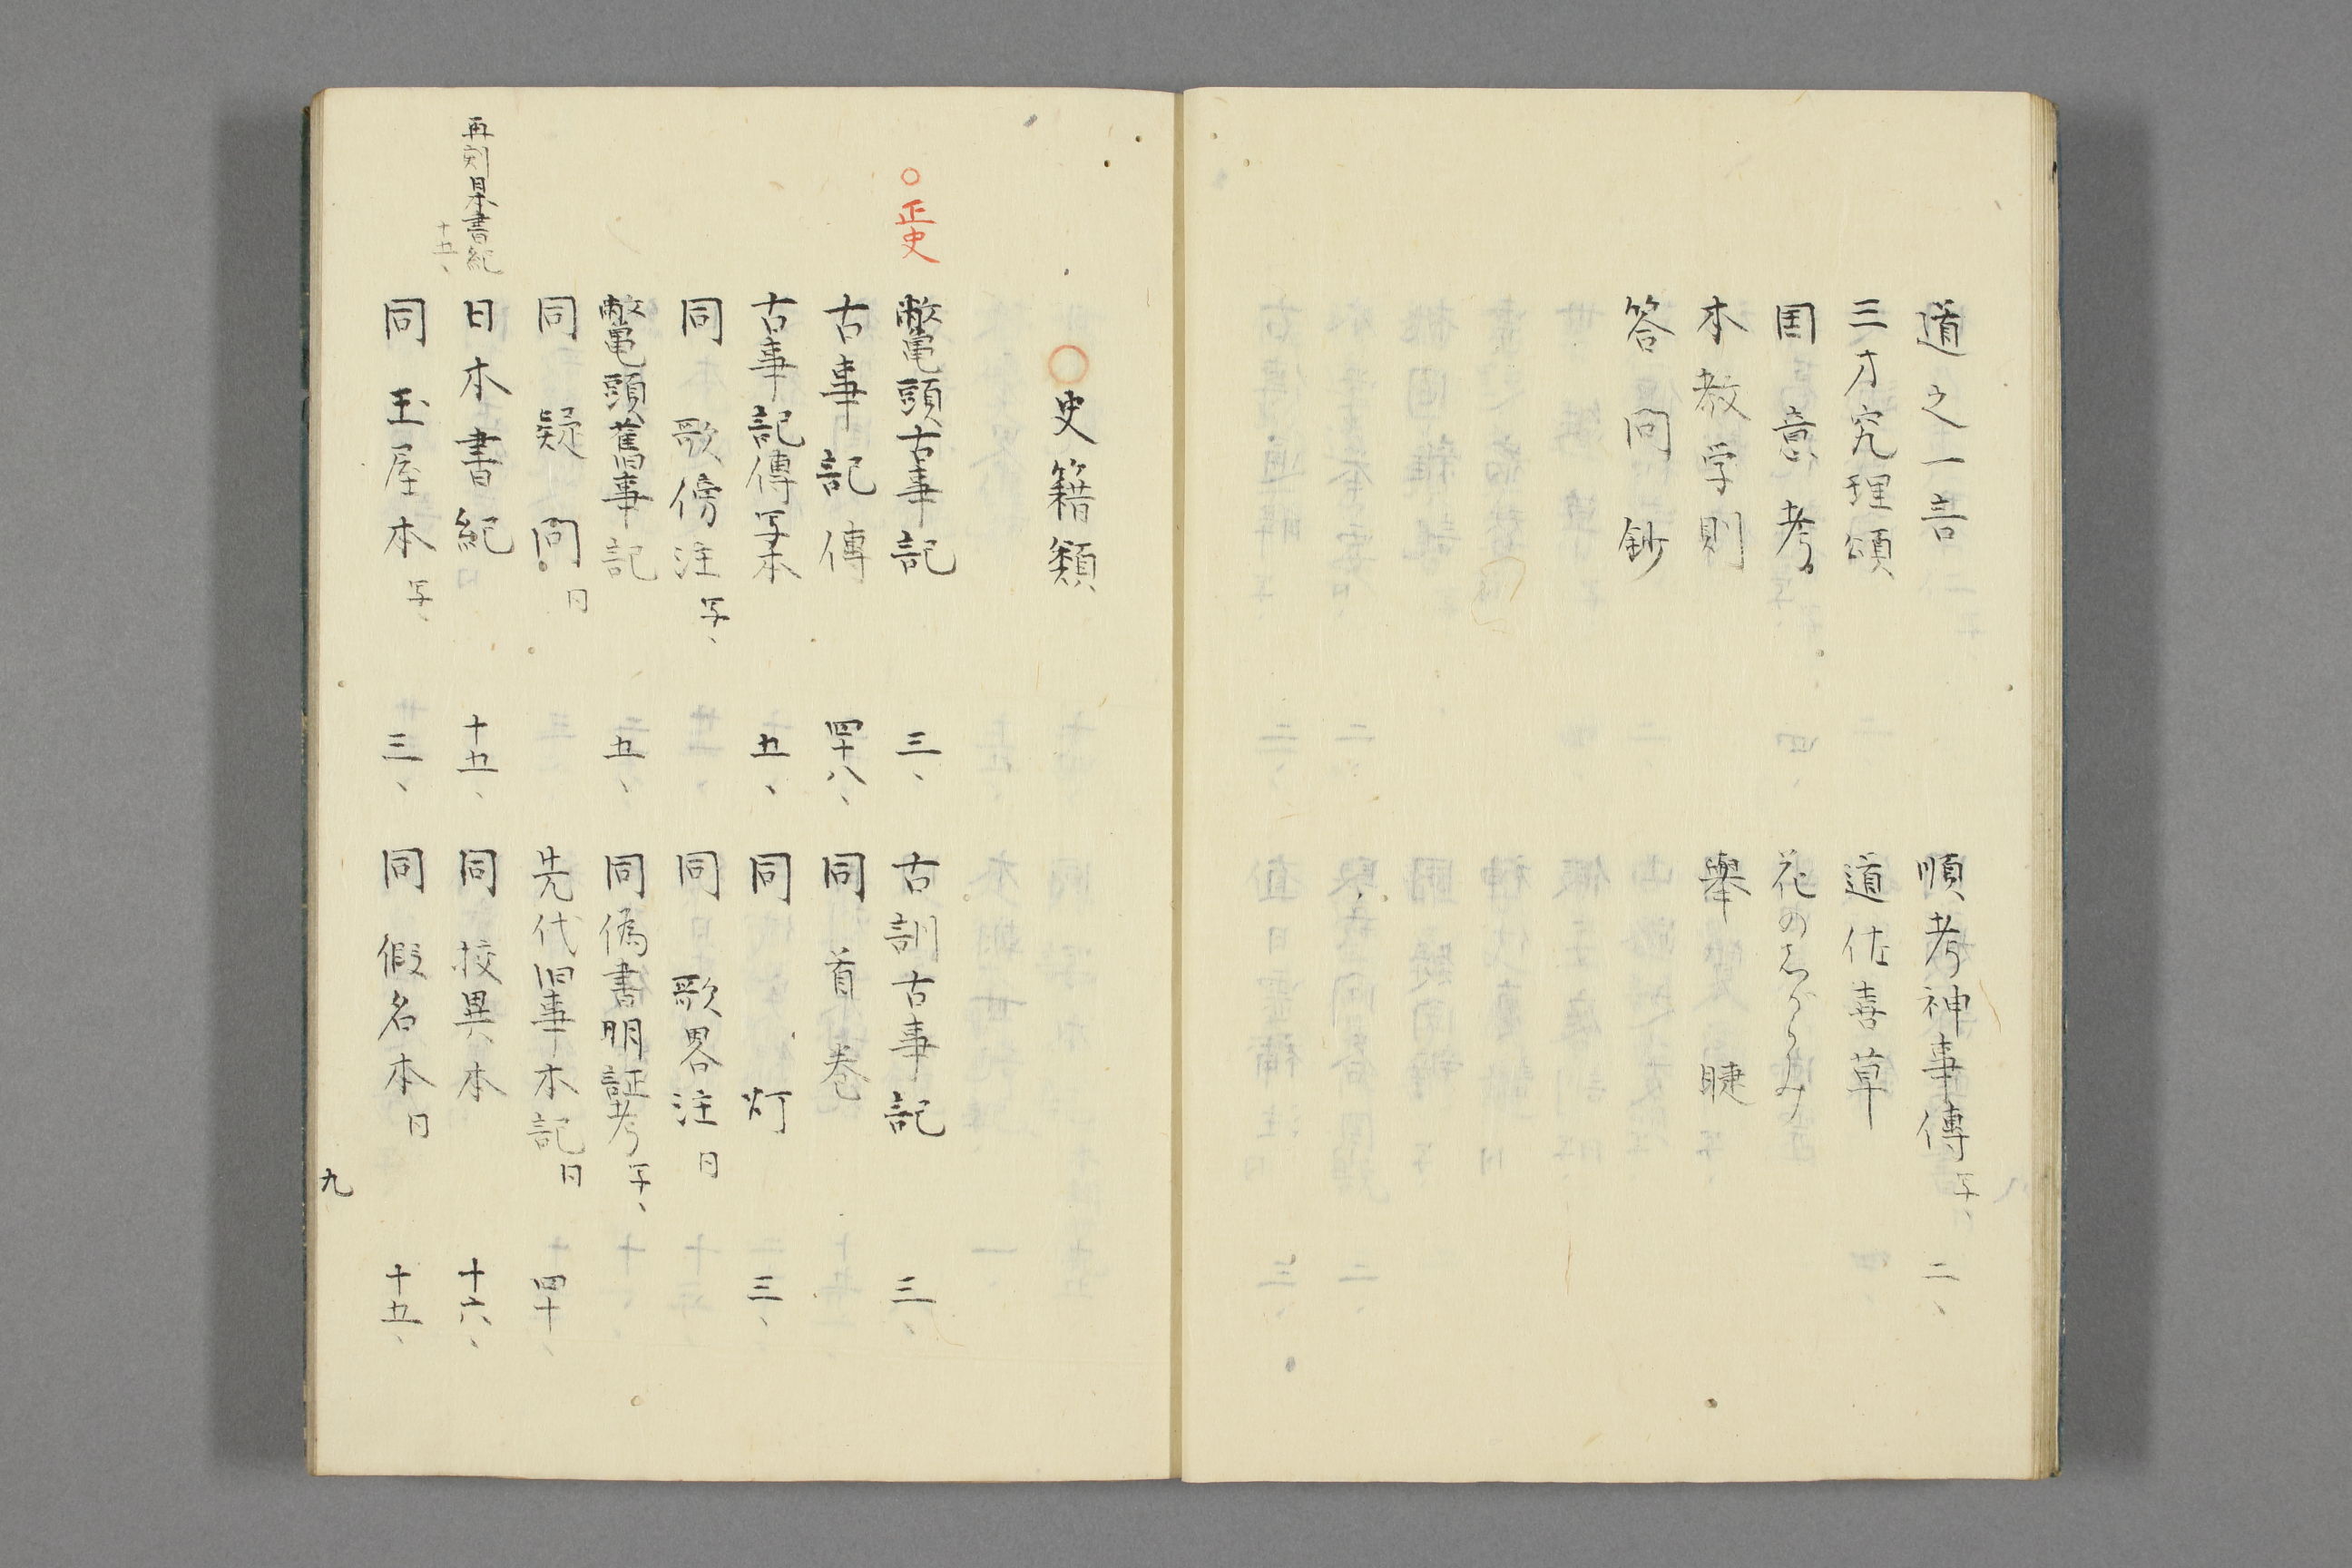 道之一言
順考神事傳 写、 二、
三才究理頌
道佐喜草
国意考
花のしがらみ
本教学則
挙睫
答問鈔
○史籍類
○正史
鼇頭古事記 三、
古訓古事記 三、
古事記傳 四十八、
同 首巻
古事記傳写本 五、
同 灯 三、
同 歌傍注 写、
同 歌畧注 同
鼇頭舊事記 五、
同偽書明証考 写、
同 疑問 同
先代旧事本記 同 四十、
再刻日本書紀 十五、
日本書紀 十五、
同 校異本 十六、
同 玉屋本 写、 三、
同 假名本 同 十五、
九